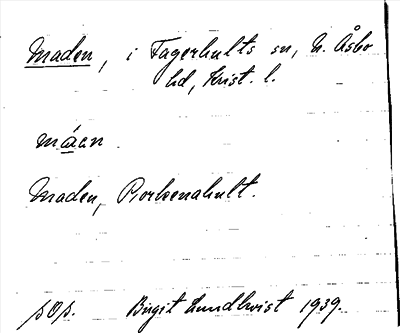 Maden, i Fagerhults sn, N. Åsbo
hd, Krist. l.
máen
Maden,
sOs. Birgit Lundkvist 1939.